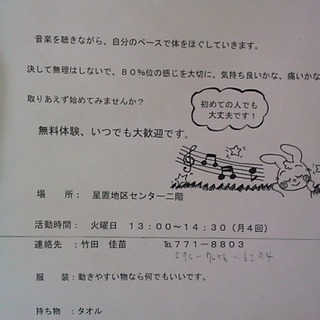 音楽を聴きながら、自分のペースで体をほぐしていきます。
決して無理はしないで、８０％位の感じを大切に、気持ち良いかな、痛いかな
取りあえず始めてみませんか？
初めての人でも
大丈夫です！
無料体験、いつでも大歓迎です。
場　所　：　星置地区センター二階
活動時間：　火曜日　１３：００～１４：３０（月４回）
連絡先　：竹田　佳苗　　℡７７１－８８０３
服　装：動きやすい物なら何でもいいです。
持ち物　：タオル